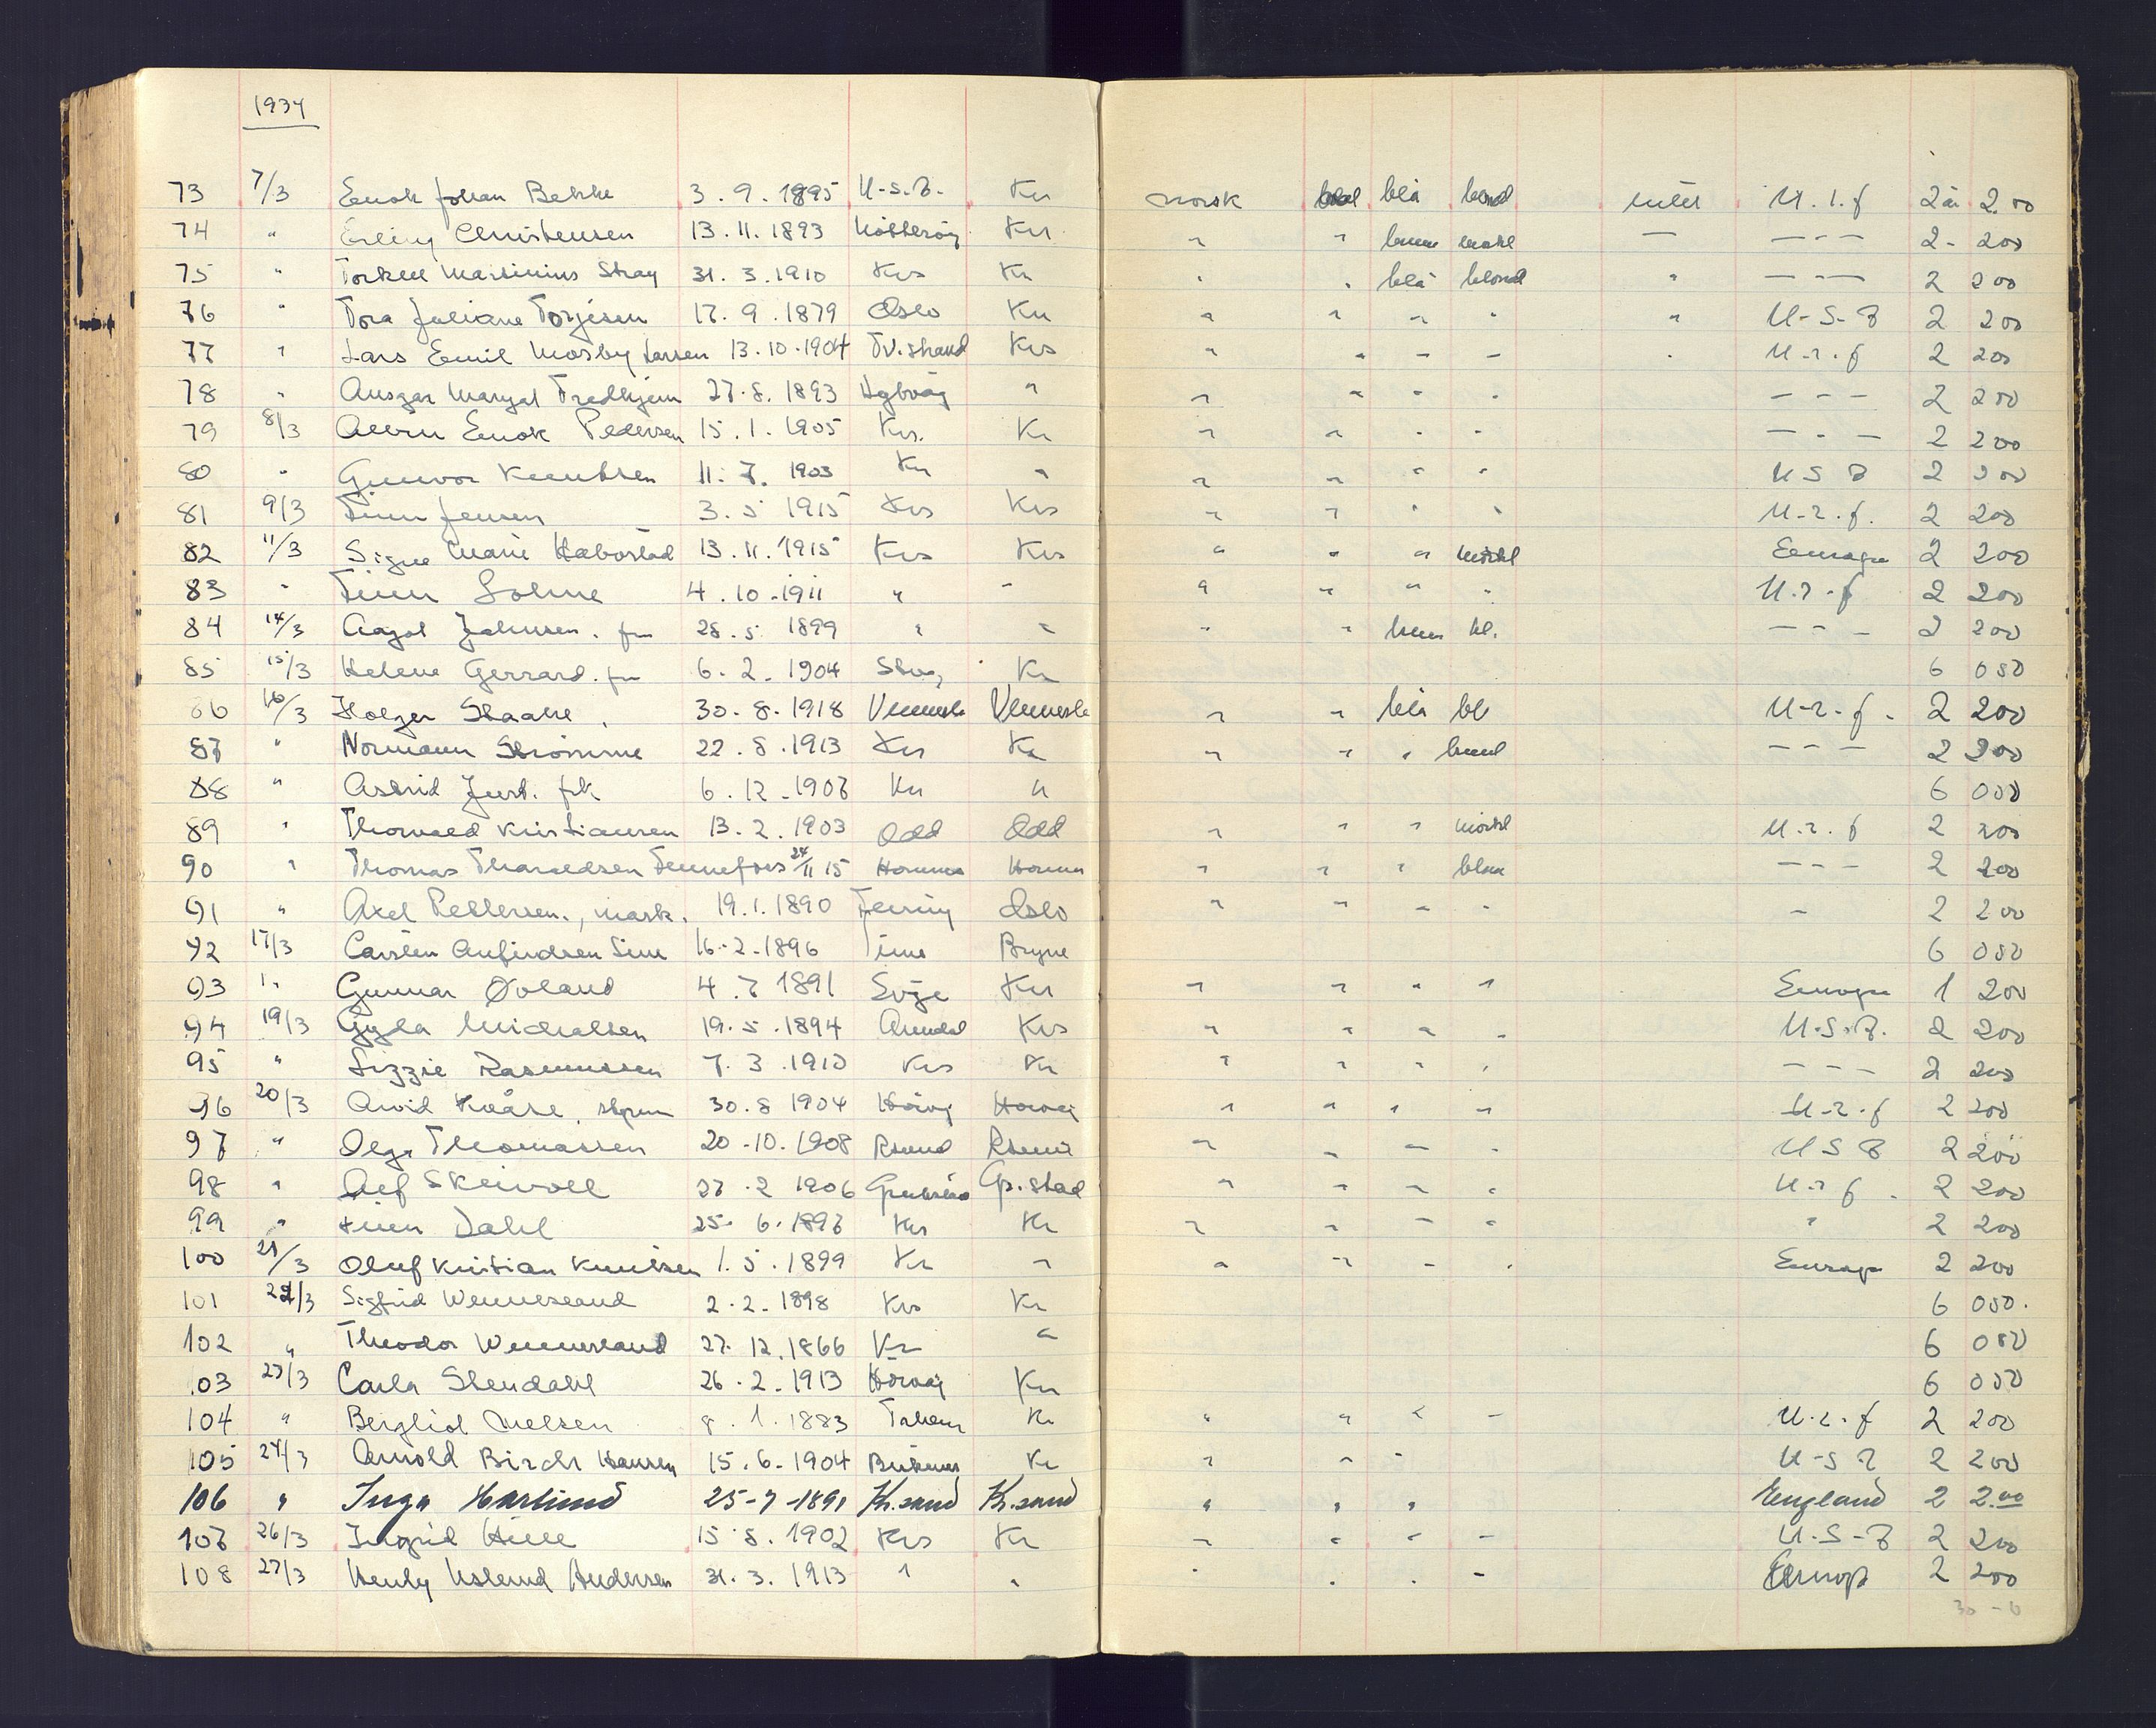 1934
73 7/3 Enok Johan Bekke 3. 9. 1895 U-S.A. Kr norsk blå blond intet U. r. f 2 år 2.00
74 " Erling Christensen 13. 11. 1893 Kr " brun mørkl — — — — 2 - 200
75 " Torkell Martinius Stray 31. 3. 1910 Krs Kr " " blå blond " — — — 2 200
76 " Tora Juliane Torjesen 17. 9. 1879 Oslo Kr " " " " " U-S-A 2 200
77 " Lars Emil Mosby Larsen 13. 10. 1904 Tv.strand Krs " " " " U-r.f 2 200
78 " Ansgar Tredkjern 27. 8. 1893 " " " " " — — — 2 200
79 8/3 Enok Pedersen 15. 1. 1905 Krs. Kr " " " " — — — 2 200
80 " Gunvor Knutsen 11. 7. 1903 Kr " " " " " U S A 2 200
81 9/3 Finn Jensen 3. 5 1915 Krs Krs " " " " U-r.f. 2 200
82 11/3 Signe Marie Hæbostad 13. 11. 1915 Krs Krs " " " mørkl Europa 2 200
83 " Finn Lohne 4. 10. 1911 " " " " " " U.r.f 2 200
84 14/3 Aagot Johnsen. fru 28. 5 1899 " " " " brun bl. — — — 2 200
85 15/3 Helene Gerrard. fru 6. 2. 1904 Kr 6 050
86 16/3 Holger Staale 30. 8. 1918 Vennesla Vennesla " " blå bl U-r-f. 2 200
87 " Normann Strømme 22. 8. 1913 Krs Kr " " " — — — 2 200
88 " Astrid Just. frk 6. 12. 1907 Kr " 6 050
89 " Thorvald Kristiansen 13. 2. 1903 Odd Odd " " " mørkl U. r. f 2 200
90 " Thomas Tharaldsen 24/11 15 " " " — — — 2 200
91 " Axel Pettersen., mask. 19. 1. 1890 Oslo " " " " " 2 200
92 17/3 Carsten Time 16. 2. 1896 Time Bryne 6 050
93 " Gunnar Øvland 4. 7 1891 Evje Kr " " " " Europa 1 200
94 19/3 Gyda Michalsen 19. 5. 1894 Arendal Krs " " " " U.S.A. 2 200
95 " Lizzie Rasmussen 7. 3. 1910 Krs Kr " " " " — — — 2 200
96 20/3 Arvid Kvåse 30. 8 1904 Høvåg Høvåg " " " " U-r.f 2 200
97 " Olga Thomassen 20. 10. 1908 " " " " U S A 2 200
98 " Alf Skeivoll 27. 2 1906 Gr.stad " " " " U.r.f. 2 200
99 " Finn Dahl 25. 6. 1897 Krs Kr " " " " " 2 200
100 21/3 Oluf Kristian Knutsen 1. 5. 1899 Kr " " " " " Europa 2 200
101 22/3 Sigfrid Wennesland 2. 2. 1898 Krs Kr 6 050.
102 " Theodor Wennesland 27. 12. 1866 Kr " 6 050
103 23/3 Carla Stendahl 26. 2. 1913 Høvåg Kr 6 050
104 " Bergliot Nielsen 8. 1. 1883 Kr " " " " U.r.f 2 200
105 24/3 Arnold Birch Hansen 15. 6. 1904 Birkenes Kr " " " U-S A 2 200
106 " Inga Harlund 25-7-1891 Kr.sand Kr.sand " " " England 2 2.00
107 26/3 Ingrid Hille 15. 8. 1902 Krs Kr " " " " U-S-A 2 200
108 27/3 Andersen 31. 3. 1913 " " " " " " Europa 2 200